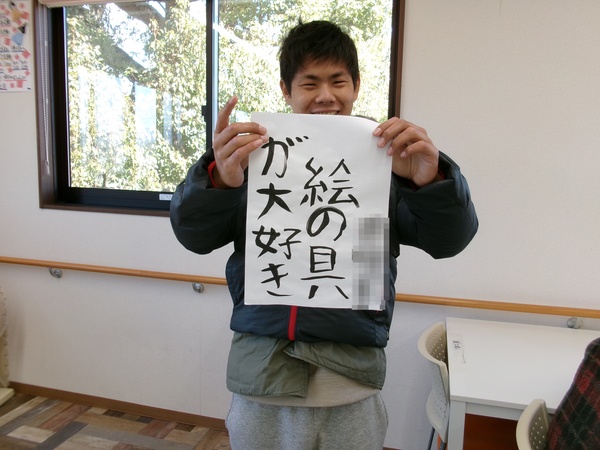 絵の具
が大好き